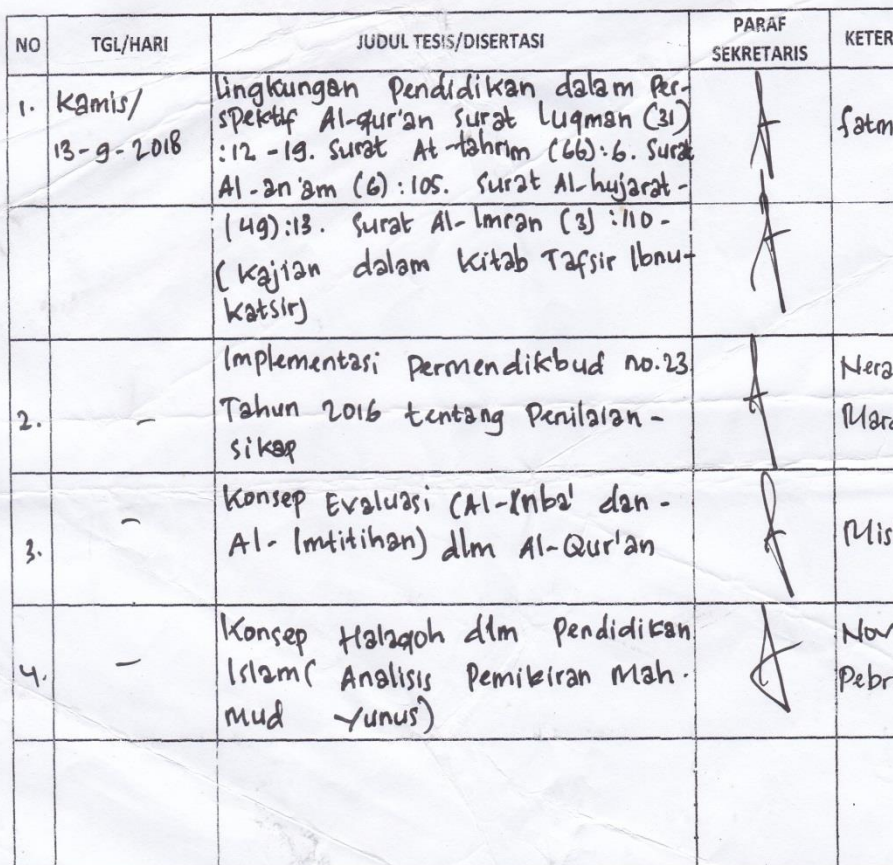 NO TGL/HARI JUDUL TESIS/DISERTASI PARAF SEKRETARIS KETER
1. Kamis/ Lingkungan Pendidikan dalam Per-
13-9-2018 spektif Al-qur'an Surat Luqman (31) fatm
:12-19. Surat At-tahrim (66):6. Surat
Al-an'am (6):105. Surat Al-hujarat-
(49):13. Surat Al-Imran (3) :110-
(Kajian dalam kitab Tafsir Ibnu-
katsir)
Implementasi Permendikbud no.23 Nera
2. - Tahun 2016 tentang Penilaian- Mara
sikap
- Konsep Evaluasi (Al-Inba' dan -
3. Al-Imtitihan) dlm Al-Qur'an Mis
Konsep Halaqoh dlm Pendidikan Nov
4. - Islam( Analisis Pemikiran Mah- Pebr
mud Yunus)